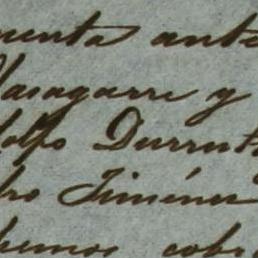 menta ante
lasagarre y
dolfo Durruty
dro Jiménez
bemos cob